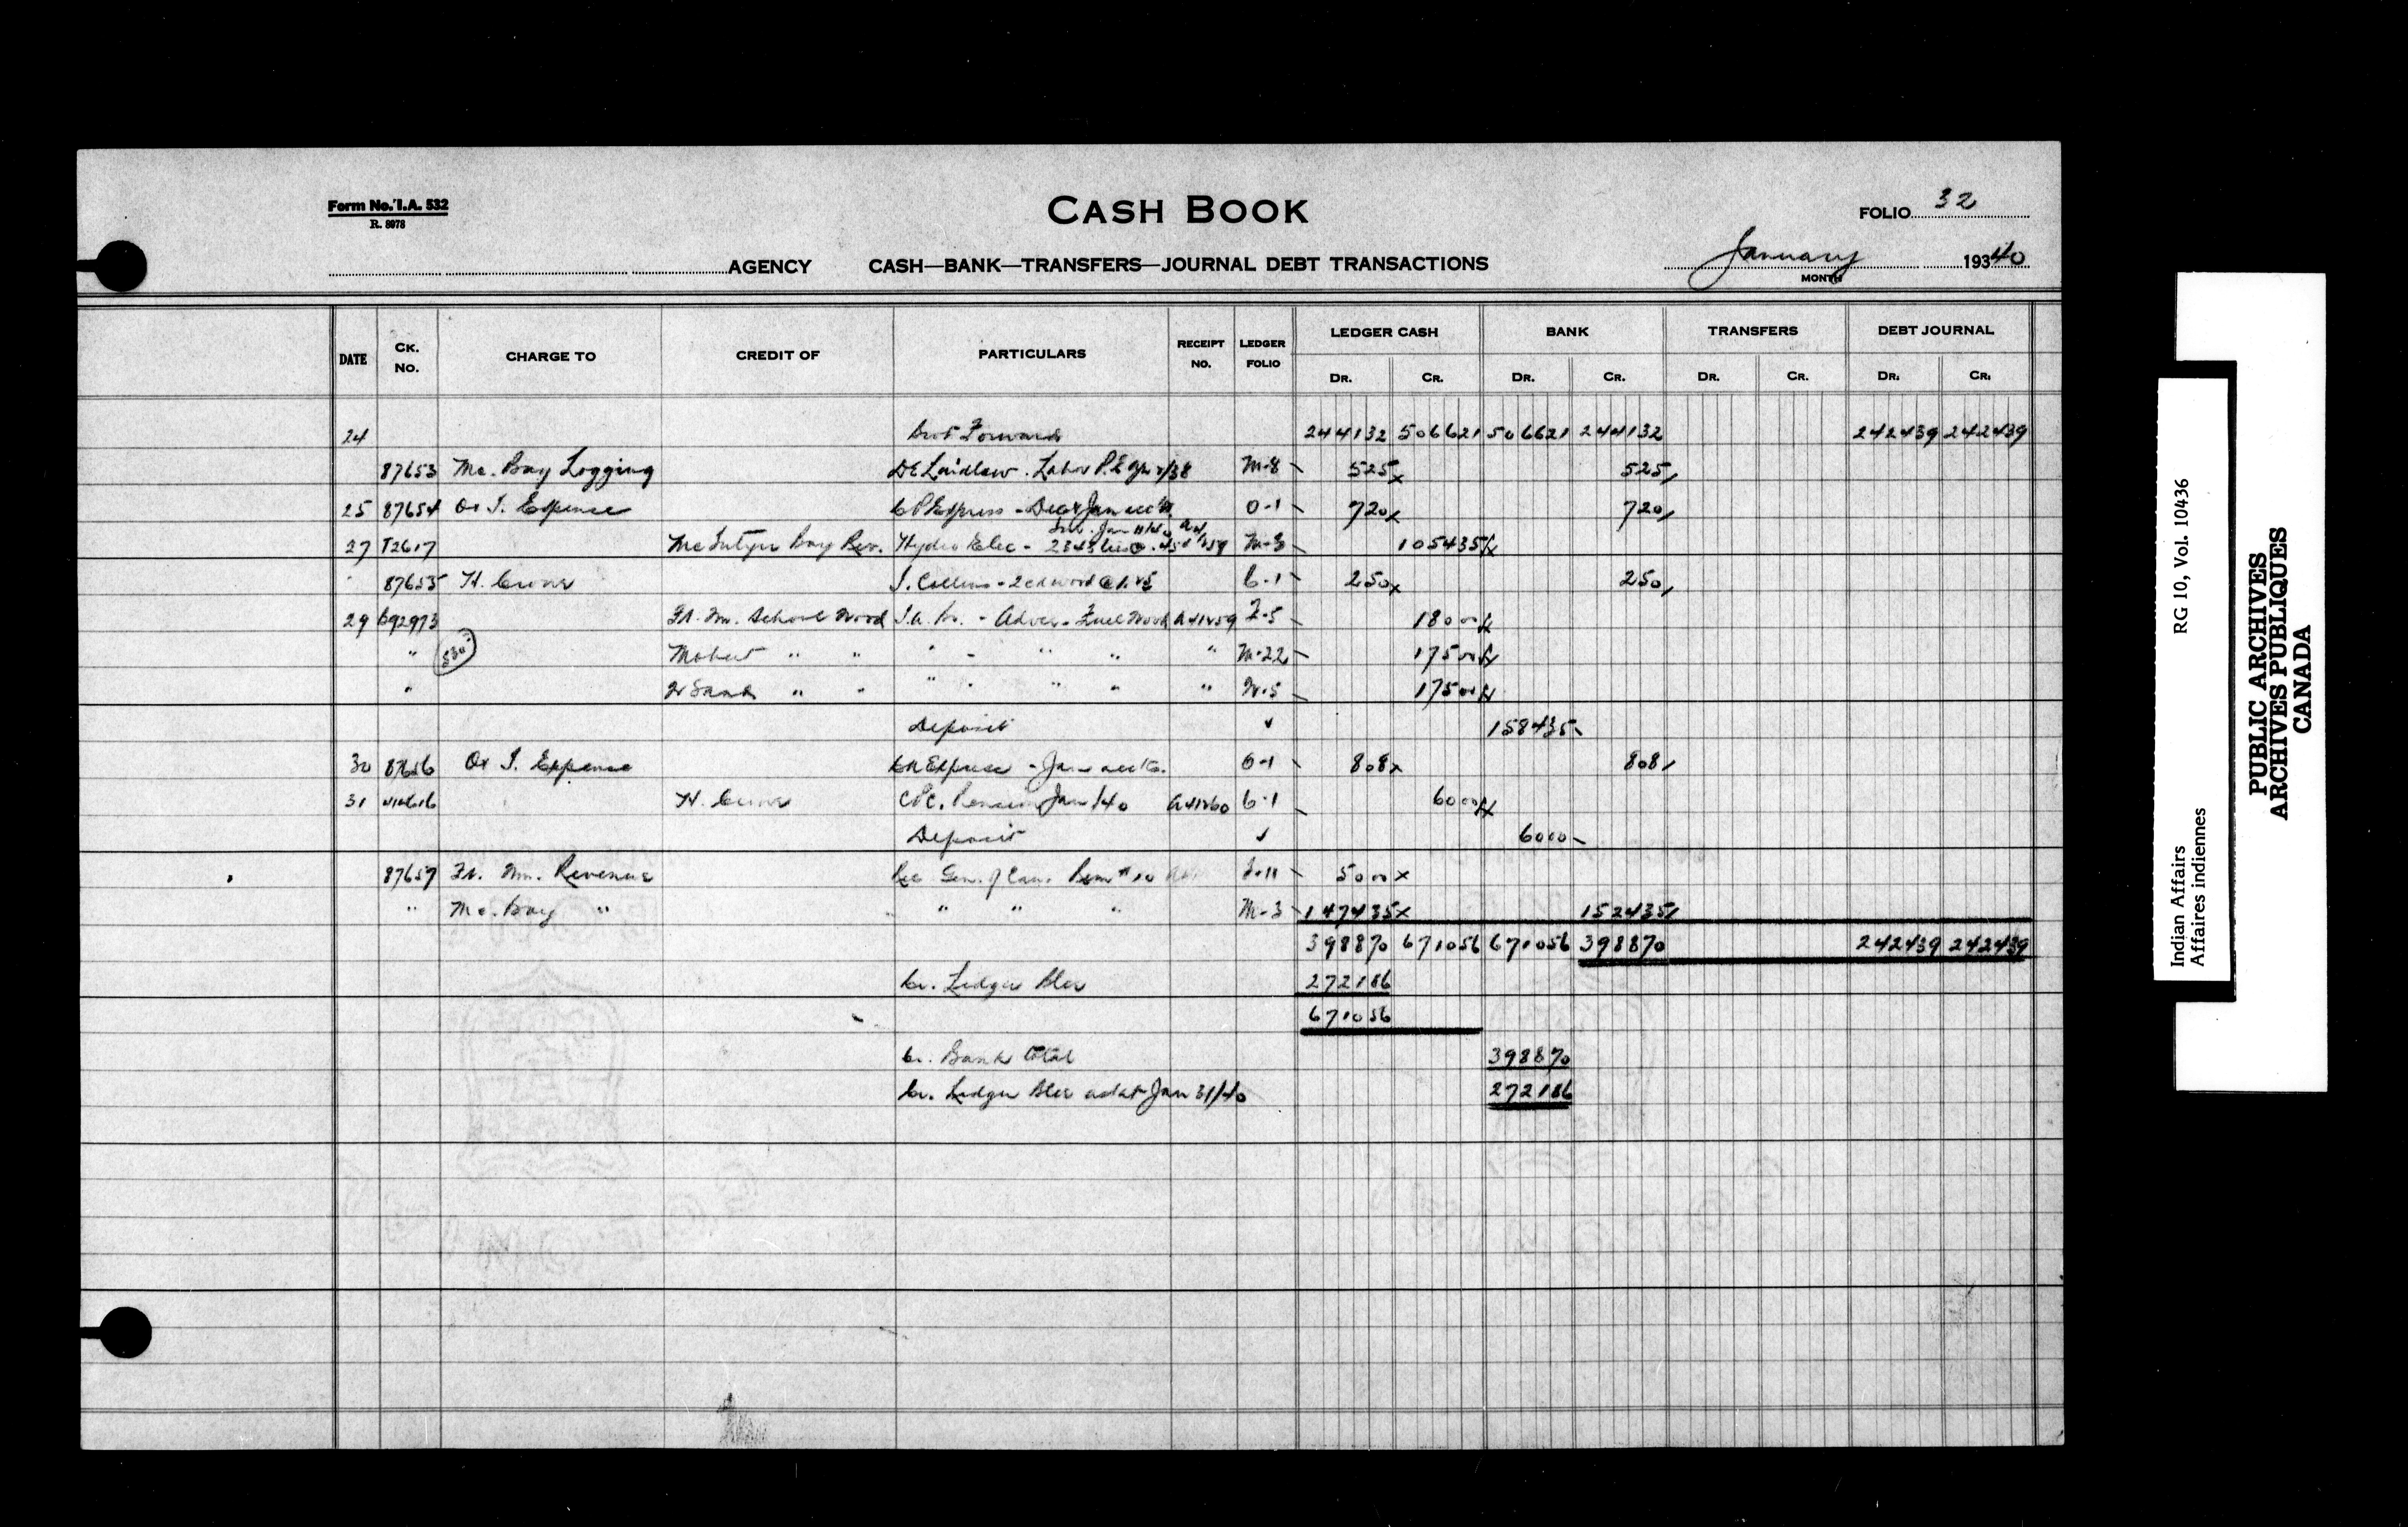 Form No. I.A. 532
R. 8978
CASH BOOK
FOLIO 32
AGENCY CASH—BANK—TRANSFERS—JOURNAL DEBT TRANSACTIONS
January 19340
MONTH
DATE CK. NO. CHARGE TO CREDIT OF PARTICULARS RECEIPT NO. LEDGER FOLIO LEDGER CASH BANK TRANSFERS DEBT JOURNAL
DR. CR. DR. CR. DR. CR. DR. CR.
24 Brot Forward 244132 506621 506621 244132 242439 242439
87653 Mc. Bay Logging D E Laidlaw . Labor M-8 525 525
25 87654 Or I. Expense C P Express - Dec & Jan 0-1 720 720
27 T2617 McIntyre Bay Rev. Hydro Elec - M-3 105435
87655 H. J. Collins - 2 cd wood @ 1.25 6-1 250 250
29 692973 Ft. Wm. School Wood I.A. Br. - Advce - Fuel Wood A41259 F-5 18000
" 530 Mobert " " " - " " " M-22 17500
" " " " - " " " N-5 17500
Deposit ✓ 158435
30 87656 Or I. Expense CN Express - Jan 0-1 808 808
31 H. Pension Jan/40 A41260 6-1 6000
Deposit ✓ 6000
87657 Ft. Wm. Revenue Rec Gen. of Can. Rem # 10 F-11 5000
" Mc. Bay " " " " M-3 147435 152435
398870 671056 671056 398870 242439 242439
Cr. Ledger Bler 272186
671056
Cr. Bank total 398870
Cr. Ledger Bler as at Jan 31/40 272186
Indian Affairs RG 10, Vol. 10436
Affaires indiennes
PUBLIC ARCHIVES
ARCHIVES PUBLIQUES
CANADA